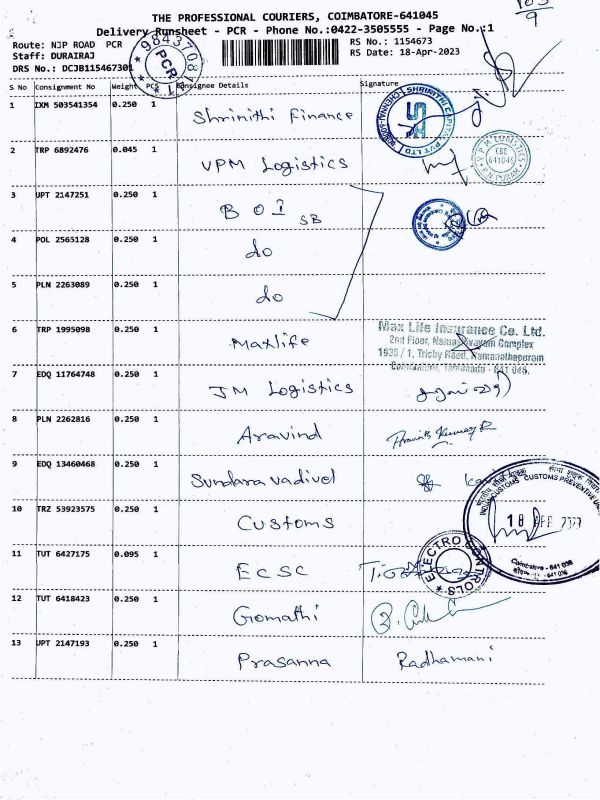 THE PROFESSIONAL COURIERS, COIMBATORE-641045
Delivery Runsheet - PCR - Phone No.:0422-3505555 - Page No.:1
Route: NJP ROAD PCR
RS No.: 1154673
Staff: DURAIRAJ
RS Date: 18-Apr-2023
DRS No.: DCJB115467301
98437081
PCR
9
S No Consignment No Weight PCS Consignee Details Signature
1 IXM 503541354 0.250 1 Shrinithi Finance
SHRINITHI CAPITAL PVT LTD
2 TRP 6892476 0.045 1 VPM Logistics
VPM LOGISTICS
CBE
641045
3 UPT 2147251 0.250 1 BOI SB
4 POL 2565128 0.250 1 do
5 PLN 2263089 0.250 1 do
6 TRP 1995098 0.250 1 Maxlife
Max Life Insurance Co. Ltd.
2nd Floor, Namasivayam Complex
1935 / 1, Trichy Road, Ramanathapuram
Coimbatore, Tamilnadu - 641 045.
7 EDQ 11764748 0.250 1 JM Logistics
8 PLN 2262816 0.250 1 Aravind
9 EDQ 13460468 0.250 1 Sundara vadivel
10 TRZ 53923575 0.250 1 Customs
INDIAN CUSTOMS CUSTOMS PREVENTIVE UNIT
18 APR 2023
Coimbatore - 641 018
11 TUT 6427175 0.095 1 ECSC
ELECTRO CONTROLS
12 TUT 6418423 0.250 1 Gomathi
13 UPT 2147193 0.250 1 Prasanna Radhamani